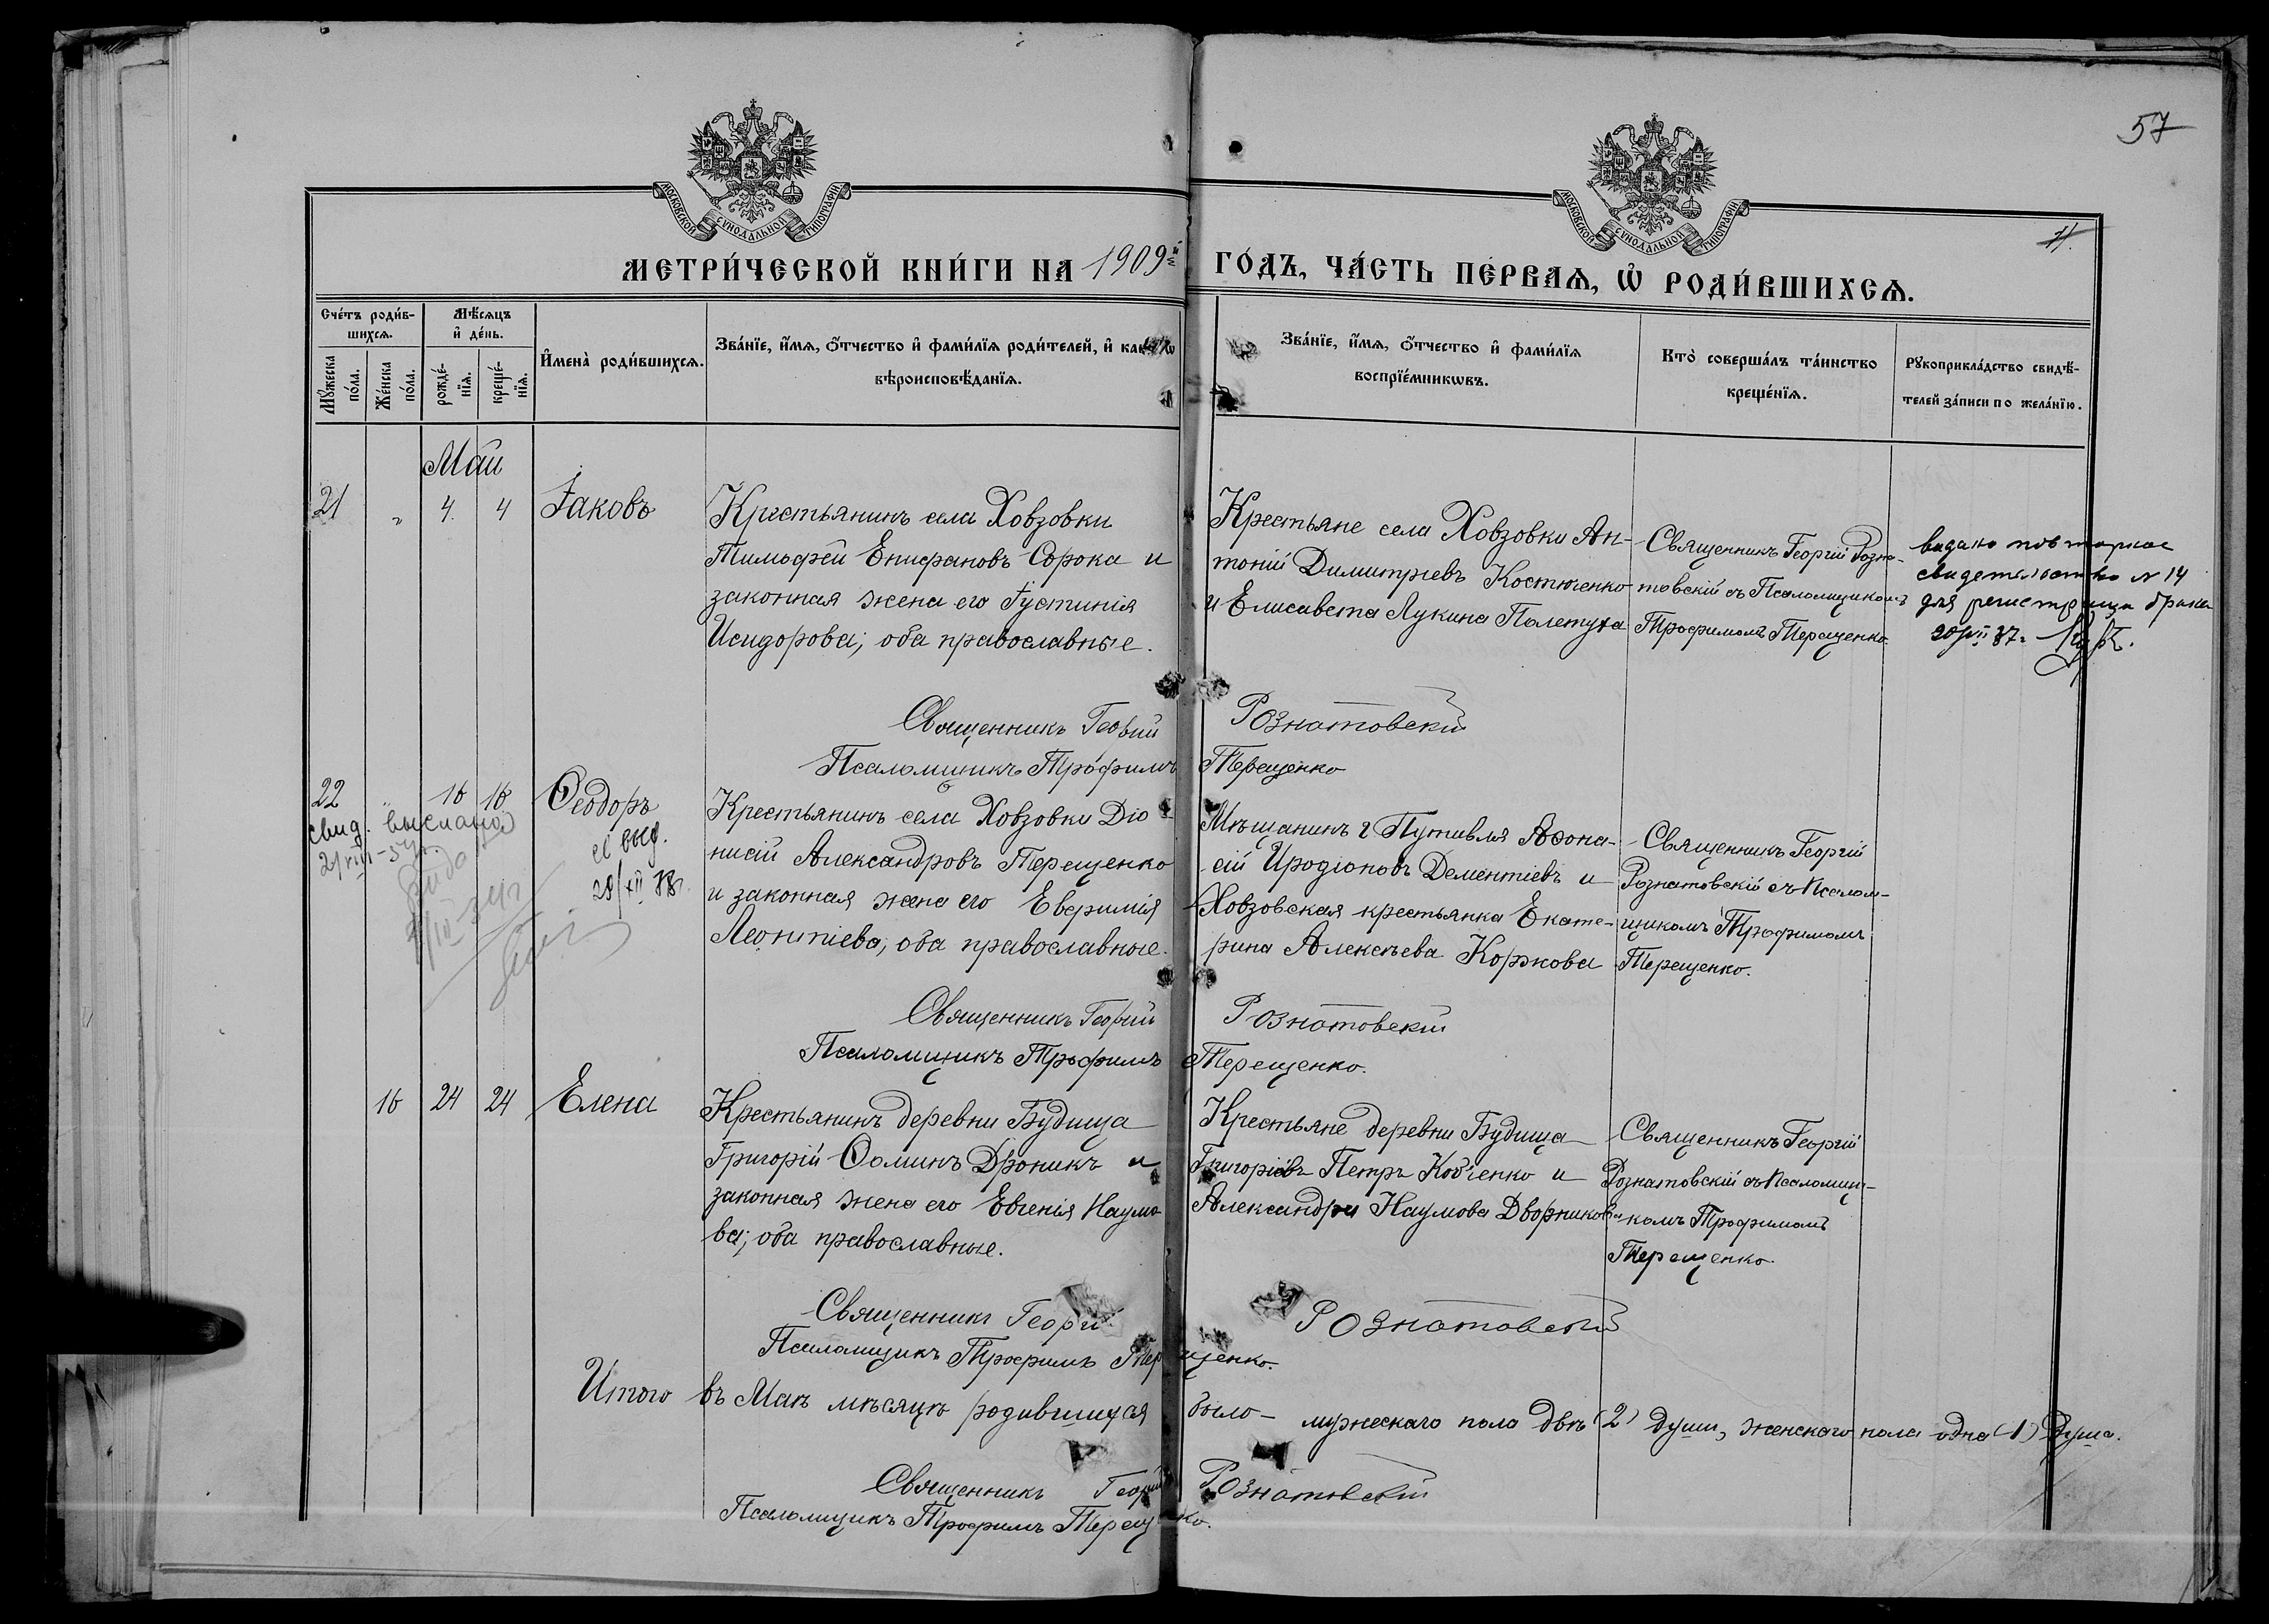 57
МОСКОВСКОЙ СѴНОДАЛЬНОЙ ТИПОГРАФІИ
МОСКОВСКОЙ СѴНОДАЛЬНОЙ ТИПОГРАФІИ
МЕТРИ́ЧЕСКОЙ КНИ́ГИ НА 1909й ГО́ДЪ, ЧА́СТЬ ПЕ́РВАѦ, Ѡ҆ РОДИ́ВШИХСѦ.
Сче́тъ роди́в-
шихсѧ.
Мꙋжеска по́ла.
Же́нска по́ла.
Мѣ́сѧцъ
и҆ де́нь.
рожде́-
нїѧ.
креще́-
нїѧ.
И҆мена̀ роди́вшихсѧ.
Зва́нїе, и҆́мѧ, о҆́тчество и҆ фами́лїѧ роди́телей, и҆ како́гѡ
вѣроисповѣ́данїѧ.
Зва́нїе, и҆́мѧ, о҆́тчество и҆ фами́лїѧ
воспрїе́мникѡвъ.
Кто̀ соверша́лъ та́инство
креще́нїѧ.
Рꙋкоприкла́дство свидѣ́-
телей за́писи по жела́нїю.
Май
21 „ 4 4 Іаковъ
Крестьянинъ села Ховзовки
Тимофей Епифановъ Сорока и
законная жена его Іустинія
Исидорова; оба православные.
Крестьяне села Ховзовки Ан-
тоній Димитріевъ Костюченко
и Елисавета Лукина Палетуха
Священникъ Георгій Розна-
товскій съ Псаломщикомъ
Трофимомъ Терещенко.
видано повторное
свидетельство N 14
для регистрации брака
20/VII 37г.
Священникъ Георгій Рознатовскій
Псаломщикъ Трофимъ Терещенко
22 „ 16 16 Ѳеодоръ
свид. выслано
21/VIII-
св выд.
28/XII 38г.
Крестьянинъ села Ховзовки Діо-
нисій Александровъ Терещенко
и законная жена его Евфимія
Леонтіева; оба православные.
Мѣщанинъ г Путивля Аѳона-
сій Иродіоновъ Дементіевъ и
Ховзовская крестьянка Екате-
рина Алексѣева Коржова
Священникъ Георгій
Рознатовскій съ Псалом-
щикомъ Трофимомъ
Терещенко.
Священникъ Георгій Рознатовскій
Псаломщикъ Трофимъ Терещенко.
16 24 24 Елена
Крестьянинъ деревни Будища
Григорій Ѳоминъ Дроникъ и
законная жена его Евгенія Наумо-
ва; оба православные.
Крестьяне деревни Будища
Григоріевъ Петръ и
Александра Наумова Дворникова
Священникъ Георгій
Рознатовскій съ Псаломщи-
комъ Трофимомъ
Терещенко.
Священникъ Георгій Рознатовскій
Псаломщикъ Трофимъ Терещенко.
Итого въ Маѣ мѣсяцѣ родившихся было - мужескаго пола двѣ (2) души, женскаго пола одна (1) душа.
Священникъ Георгій Рознатовскій
Псаломщикъ Трофимъ Терещенко.